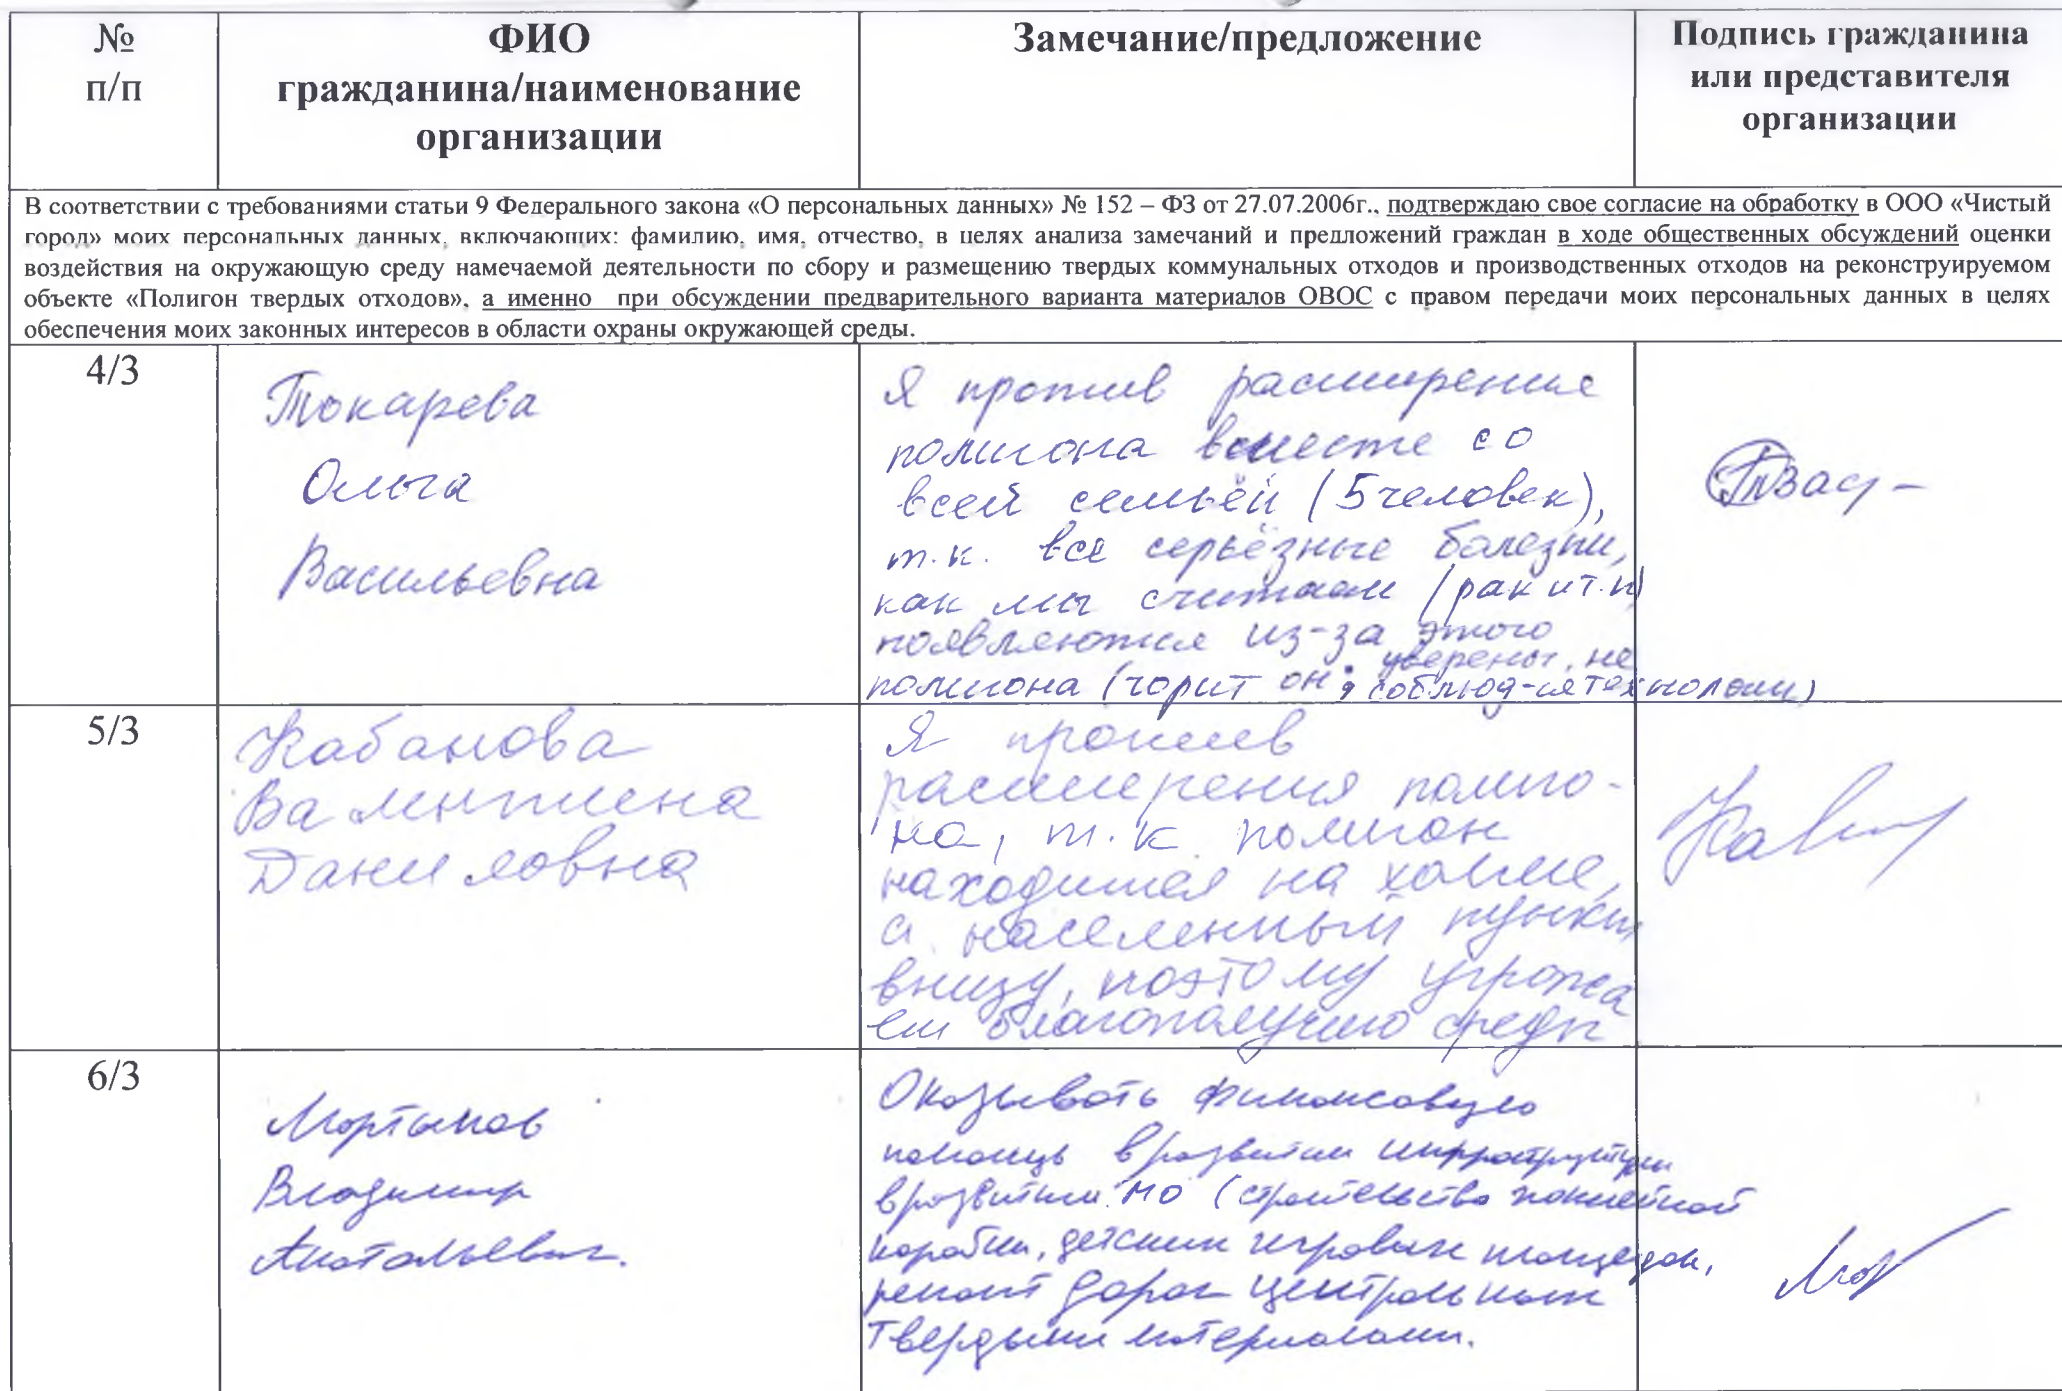 №
п/п
ФИО
гражданина/наименование
организации
Замечание/предложение
Подпись гражданина
или представителя
организации
В соответствии с требованиями статьи 9 Федерального закона «О персональных данных» № 152 – ФЗ от 27.07.2006г., подтверждаю свое согласие на обработку в ООО «Чистый
город» моих персональных данных, включающих: фамилию, имя, отчество, в целях анализа замечаний и предложений граждан в ходе общественных обсуждений оценки
воздействия на окружающую среду намечаемой деятельности по сбору и размещению твердых коммунальных отходов и производственных отходов на реконструируемом
объекте «Полигон твердых отходов», а именно при обсуждении предварительного варианта материалов ОВОС с правом передачи моих персональных данных в целях
обеспечения моих законных интересов в области охраны окружающей среды.
4/3
Токарева
Ольга
Васильевна
Я против расширение
полигона вместе со
всей семьёй (5 человек),
т.к. все серьёзные болезни,
как мы считаем (рак и т.п)
появляются из-за этого
полигона (горит он, уверены, не
соблюд-ся технологии)
5/3
Кабанова
Валентина
Даниловна
Я против
расширения полиго-
на, т.к полигон
находится на холме,
а населенный пункт
внизу, поэтому угрожа
ет благополучию среды
6/3
Мортынов
Владимир
Анатольевич.
Оказывать финансовую
помощь в развитии инфраструктуры
в развитии МО (строительство хоккейной
коробки, детских игровых площадок,
ремонт дорог центральных
твердыми материалами.